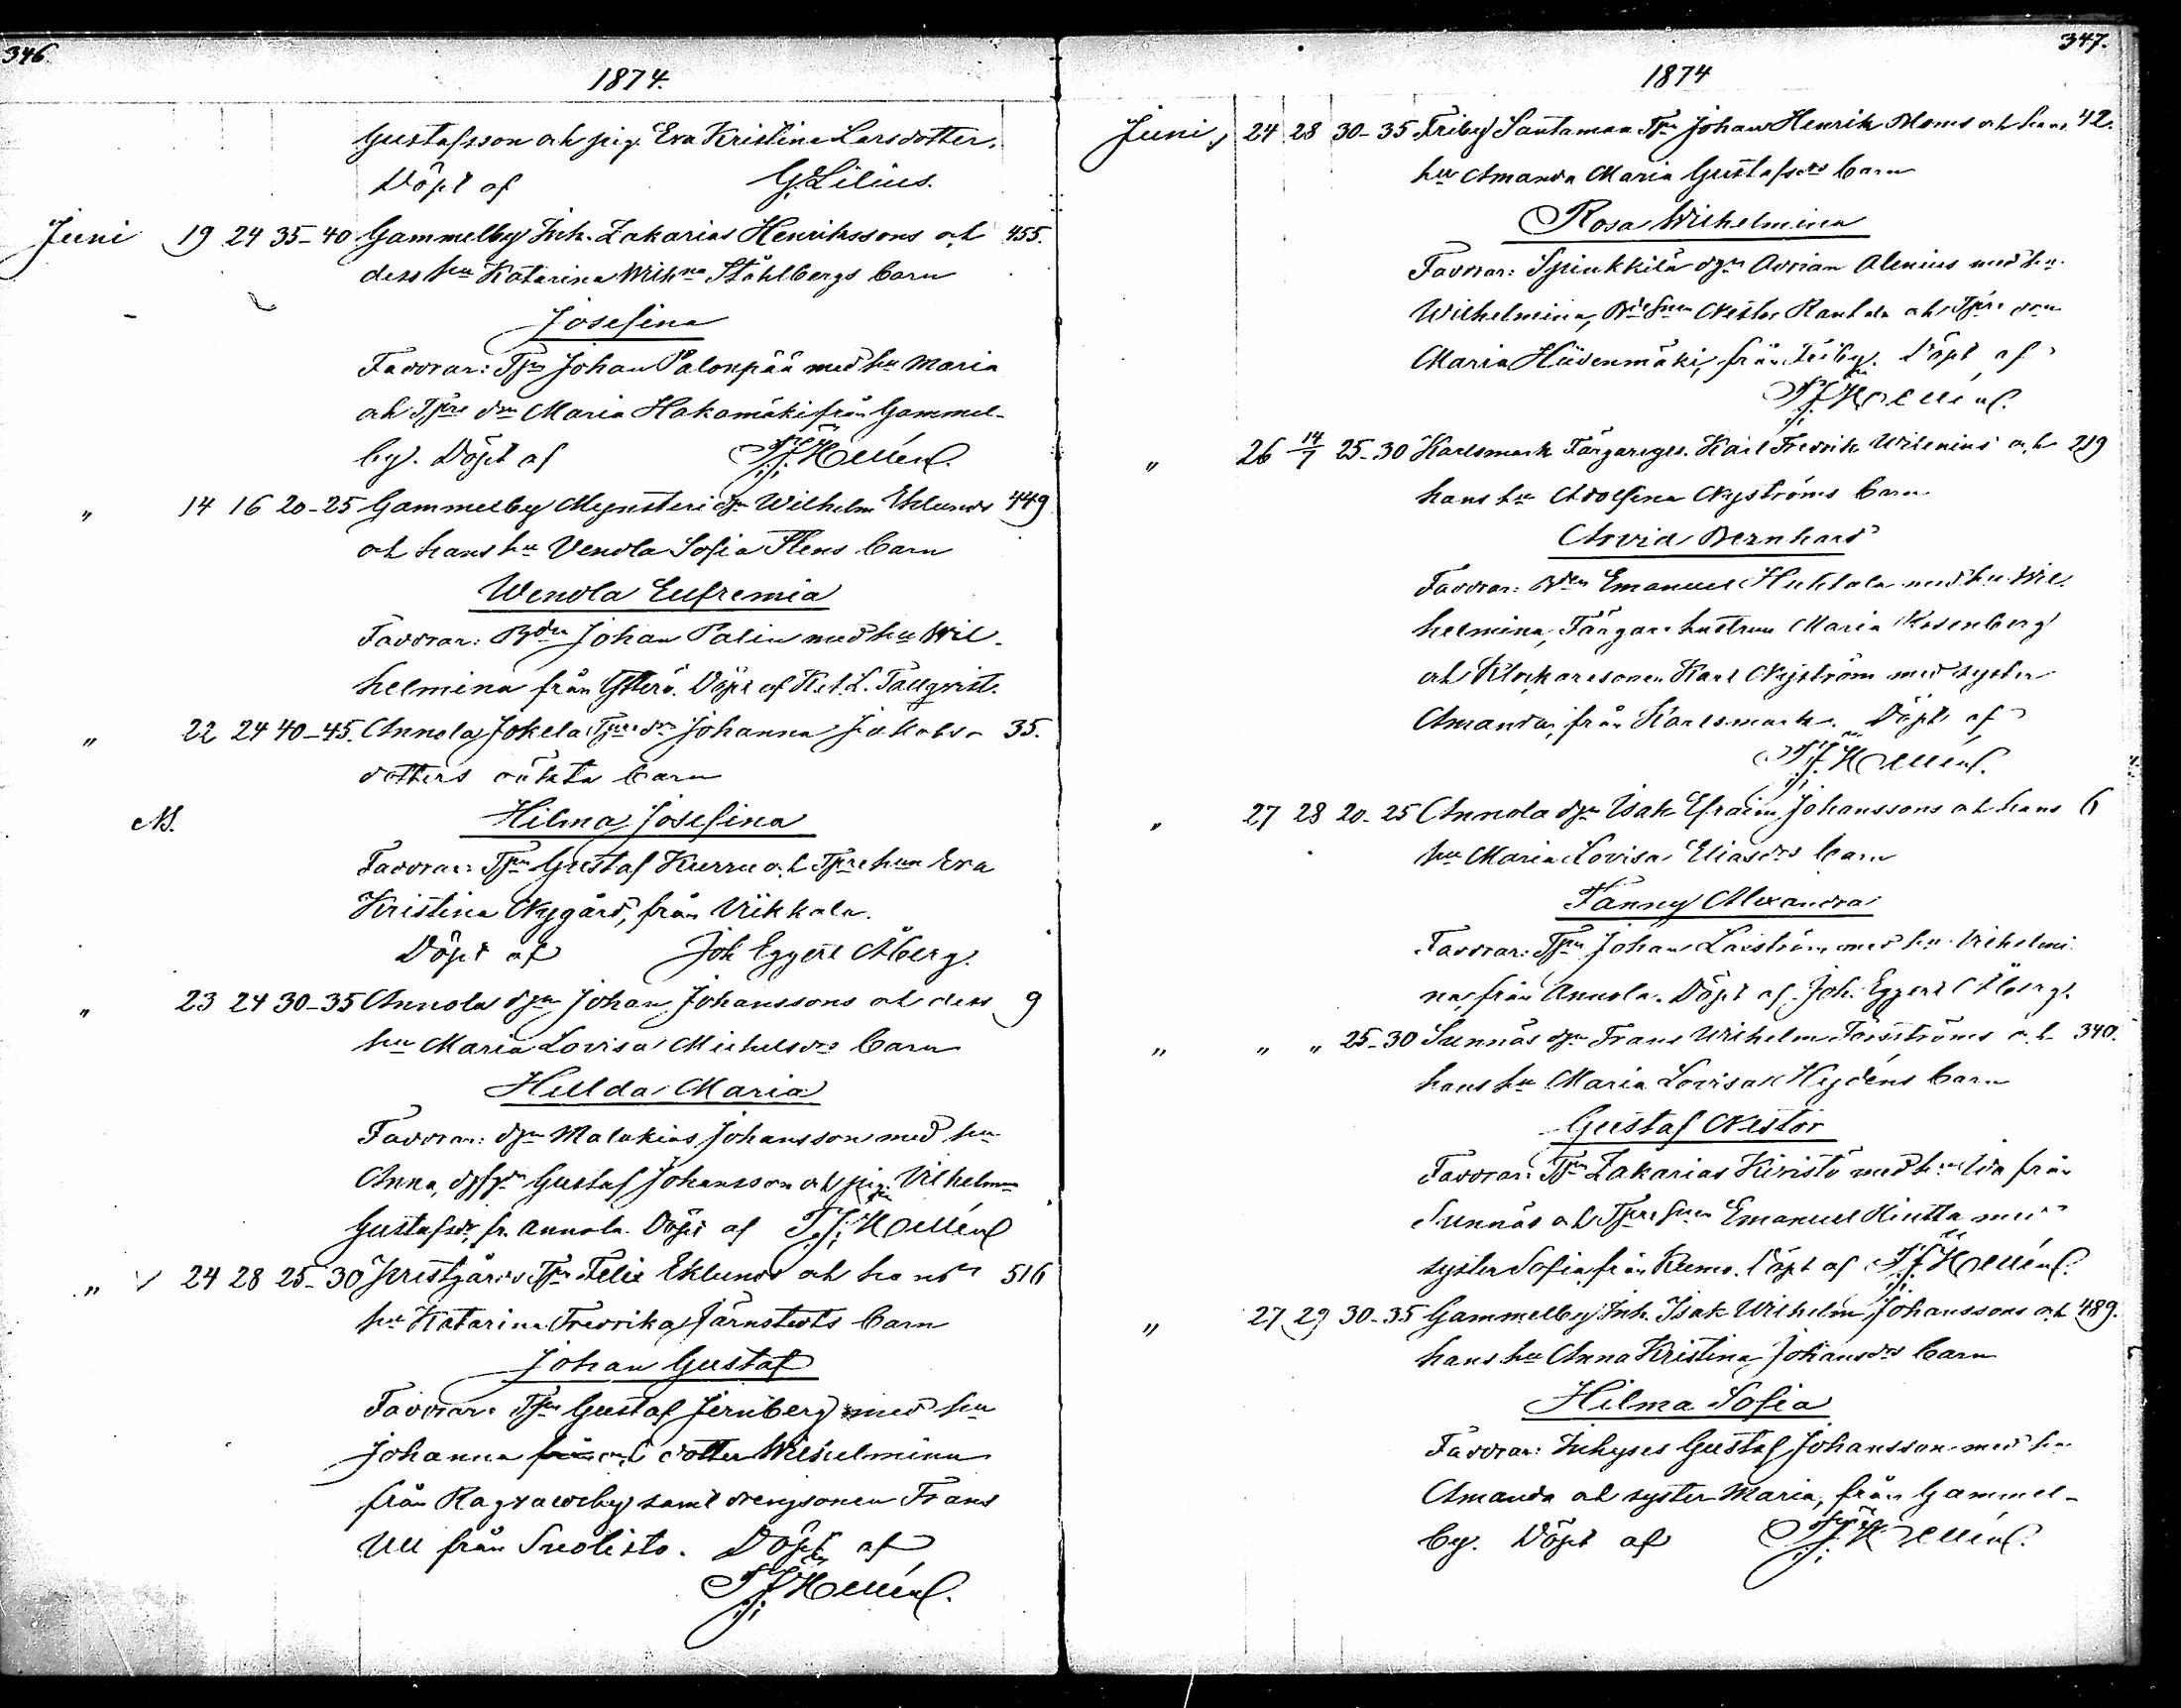 346.
1874.
Gustafsson och pig. Eva Kristina Larsdotter.
Döpt af G. Lilius.
Juni 19 24 35-40 Gammelby Inh. Zakarias Henrikssons och 455.
dess hu Katarina Wilhna Ståhlbergs barn
Josefina
Faddrar: Tpn Johan Palonpää med hu Maria
och Tpre dn Maria Hakamäki från Gammel-
by. Döpt af F. J. Hellén.
" 14 16 20-25 Gammelby Wilhelm Eklunds 449
och hans hu Vendla Sofia Stens barn
Wendla Eufremia
Faddrar: Bdn Johan Palin med hu Wil-
helmina från Ytterö. Döpt af K. A. L. Tallqvist.
" 22 24 40-45. Annola Jokela Tpre dn Johanna Jakobs- 35.
dotters oäkta barn
NB. Hilma Josefina
Faddrar: Tpn Gustaf Kurru och Tpre hun Eva
Kristina Nygård, från Viikkala.
Döpt af Joh Eggert Åberg.
" 23 24 30-35 Annola dgn Johan Johanssons och dess 9
hu Maria Lovisa Michelsdrs barn
Hulda Maria
Faddrar: dgn Malakias Johansson med hu
Anna, Gustaf Johansson och pig. Vilhelm
Gustafsdr, fr. Annola. Döpt af F. J. Hellén
" 24 28 25-30 Prestgårds Tpn Felix Eklunds och hans 516
hu Katarina Fredrika Järnstedts barn
Johan Gustaf
Faddrar: Tpn Gustaf Jernberg med hu
Johanna och dotter Wilhelmina
från Ragvaldsby samt drengsonen Frans
Ull från Suolisto. Döpt af
F. J. Hellén.
347.
1874
Juni 24 28 30-35 Friby Santamaa Tpn Johan Henrik Moms och hans 42.
hu Amanda Maria Gustafsdrs barn
Rosa Wilhelmina
Faddrar: Spinkkilä dgn Adrian Alenius med hu
Wilhelmina, Bdesnen Nestor Rantala och Tpre dn
Maria Hiidenmäki, från Friby. Döpt af
F. J. Hellén.
" 26 14/7 25-30 Karlsmark Färgareges. Karl Fredrik Wilenius och 219
hans hu Adolfina Nyströms barn
Arvid Bernhard
Faddrar: Bdn Emanuel Huhtala med hu Wil-
helmina, Färgare hustrun Maria Rosenberg
och Klockaresonen Karl Nyström med syster
Amanda, från Karlsmark. Döpt af
F. J. Hellén.
" 27 28 20-25 Annola dgn Isak Efraim Johanssons och hans 6
hu Maria Lovisa Eliasdrs barn
Fanny Alexandra
Faddrar: Tpn Johan med hu Vilhelmi-
na, från Annola. Döpt af Joh. Eggert Åberg.
" " " 25-30 Sunnäs dgn Frans Wilhelm Forsströms och 340.
hans hu Maria Lovisa Hydéns barn
Gustaf Nestor
Faddrar: Tpn Zakarias Kiristö med hu Ida från
Sunnäs och Tpresnen Emanuel Hiutta med
syster Sofia från Kumo. Döpt af F. J. Hellén.
" 27 29 30-35 Gammelby Inh. Isak Wilhelm Johanssons och 489.
hans hu Anna Kristina Johansdrs barn
Hilma Sofia
Faddrar: Inhyses Gustaf Johansson med hu
Amanda och syster Maria, från Gammel-
by. Döpt af F. J. Hellén.